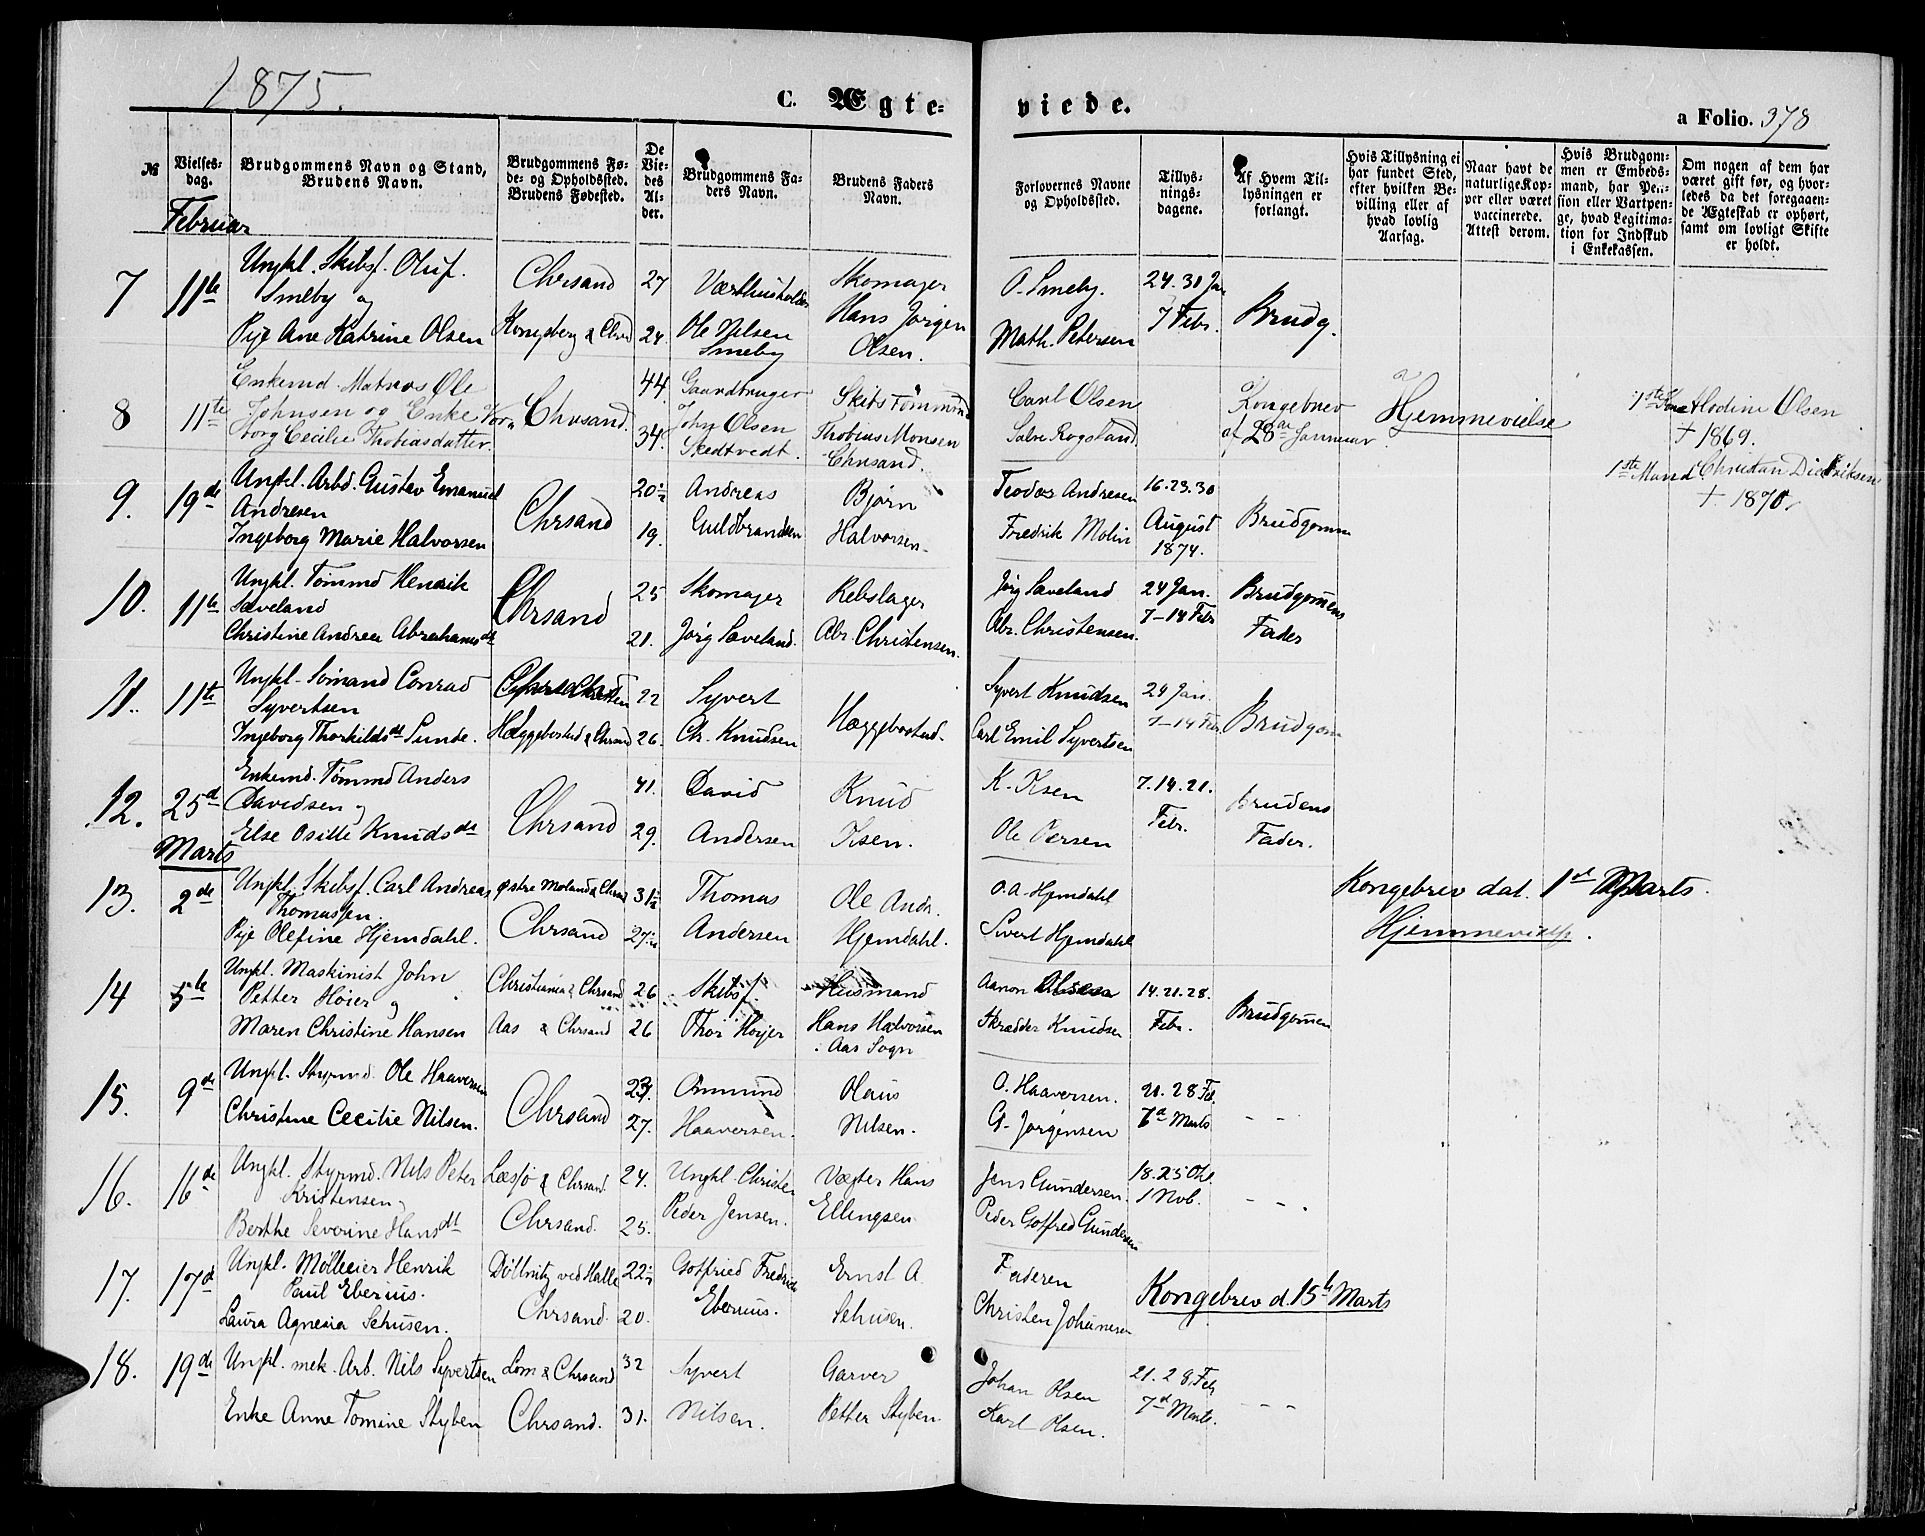 1875.
C. Ægte-
viede.
a Folio. 378
№
Vielses-
dag.
Brudgommens Navn og Stand,
Brudens Navn.
Brudgommens Fø-
de- og Opholdssted.
Brudens Fødested.
De
Vie-
des
Al-
der.
Brudgommens Fa-
ders Navn.
Brudens Faders
Navn.
Forlovernes Navne
og Opholdssted.
Tillys-
nings-
dagene.
Af Hvem Til-
lysningen er
forlangt.
Hvis Tillysning ei
har fundet Sted,
efter hvilken Be-
villing eller af
hvad lovlig
Aarsag.
Naar havt de
naturlige Kop-
per eller været
vaccinerede.
Attest derom.
Hvis Brudgom-
men er Embeds-
mand, har Pen-
sion eller Vartpen-
ge, hvad Legitima-
tion for Indskud
i Enkekassen.
Om nogen af dem har
været gift før, og hvor-
ledes da det foregaaen-
de Ægteskab er ophørt,
samt om lovligt Skifte
er holdt.
Februar
7 11te Ungkl. Skibsf. Oluf Chrsand 27 Værthusholder Skomager O. Smeby. 24. 31 Jan
Smeby og Hans Jørgen 7 Febr. Brudg.
Pige Ane Katrine Olsen Kongsberg & Chrsd 24 Ole Nilsen Olsen. Math. Petersen
Smeby
8 11te Enkemd. Matros Ole Chrsand. 44 Gaardbruger Skibstømmrmd Carl Olsen Kongebrev Hjemmevielse 1ste Kone Alodine Olsen
Johnsen og Enke John Olsen Thobias Monsen Salve Rogstand af 28de Januar † 1869.
borg Cecilie Thobiasdatter 34. Skedtvedt. Chrsand. 1ste Mand Christian Diedriksen
† 1870.
9. 19de Ungkl. Arbd. Gustav Emanuel Chrsand 20½ Andreas Bjørn Teodor Andresen 16. 23. 30 Brudgomm
Andresen August
Ingeborg Marie Halvorsen 19. Guldbrandsen Halvorsen Fredrik Molin 1874.
10. 11te Ungkl. Tømmd Henrik Chrsand 25 Skomager Rebslager Jørg Saveland 24 Jan. Brudgomens
Saveland 7-14 Febr Fader
Christine Andrea Abrahamsdt 21. Jørg Saveland. Abr. Christensen. Abr. Christensen.
11. 11te Ungkl. Sømand Conrad 22 Syvert Hæggebostad. Syvert Knudsen 24 Jan. Brudgom
Syvertsen 7-14 Febr
Ingeborg Thorkildsdt Sunde. Hæggebostad & Chrsand 26. Chr. Knudsen Carl Emil Syvertsen
12. 25d Enkemd. Tømmd Anders Chrsand 41. David Knud K. Isen 7. 14. 21. Brudens
Davidsen og Febr. Fader.
Else Osille Knudsdt 29. Andersen Isen. Ole Persen
Marts
13. 2de Ungkl. Skibsf. Carl Andreas Østre Moland & Chrsd 31½ Thomas Ole Andr. O. A. Hjemdahl Kongebrev dat. 1ste Marts.
Thomassen. Hjemmevielse.
Pige Olefine Hjemdahl. Chrsand 27½ Andersen Hjemdahl. Sivert Hjemdahl
14 5te Ungkl. Maskinist John Christiania & Chrsand 26 Skibsf. Husmand Aanon Olsen 14. 21. 28. Brudgomen
Petter Høier og Febr.
Maren Christine Hansen Aas & Chrsand 26 Thor Høyer Hans Halvorsen Skrædder Knudsen
Aas Sogn
15. 9de Ungkl. Styrmd. Ole Haaversen Chrsand 23. Ommund Olaus O. Haaversen. 21. 28 Feb. - -
Christine Cecilie Nilsen. 27. Haaversen. Nilsen. G. Jørgensen 7de Marts
16. 16de Ungkl. Styrmd. Nils Peter Læsø & Chrsand 24. Ungkl. Christen Vægter Hans Jens Gundersen. 18. 25 Okt. - - .
Kristensen, 1 Nob.
Berthe Severine Hansdt Chrsand. 25. Peder Jensen. Ellingsen. Peder Gotfred Gundersen
17. 17d Ungkl. Mølleier Henrik Døllnitz ved Halle 22½ Gotfried Fredrich Ernst A. Faderen Kongebrev d. 15te Marts
Paul Eberius.
Laura Agnesia Schusen. Chrsand. 20. Eberius. Schusen. Christen Johannesen
18. 19de Ungkl. mek. Arb. Nils Syvertsen Lom & Chrsand 32 Syvert Garver Johan Olsen 21. 28 Feb - - -
Enke Anne Tomine Styben Chrsand. 31. Nilsen. Petter Styben Karl Olsen. 7d Marts.